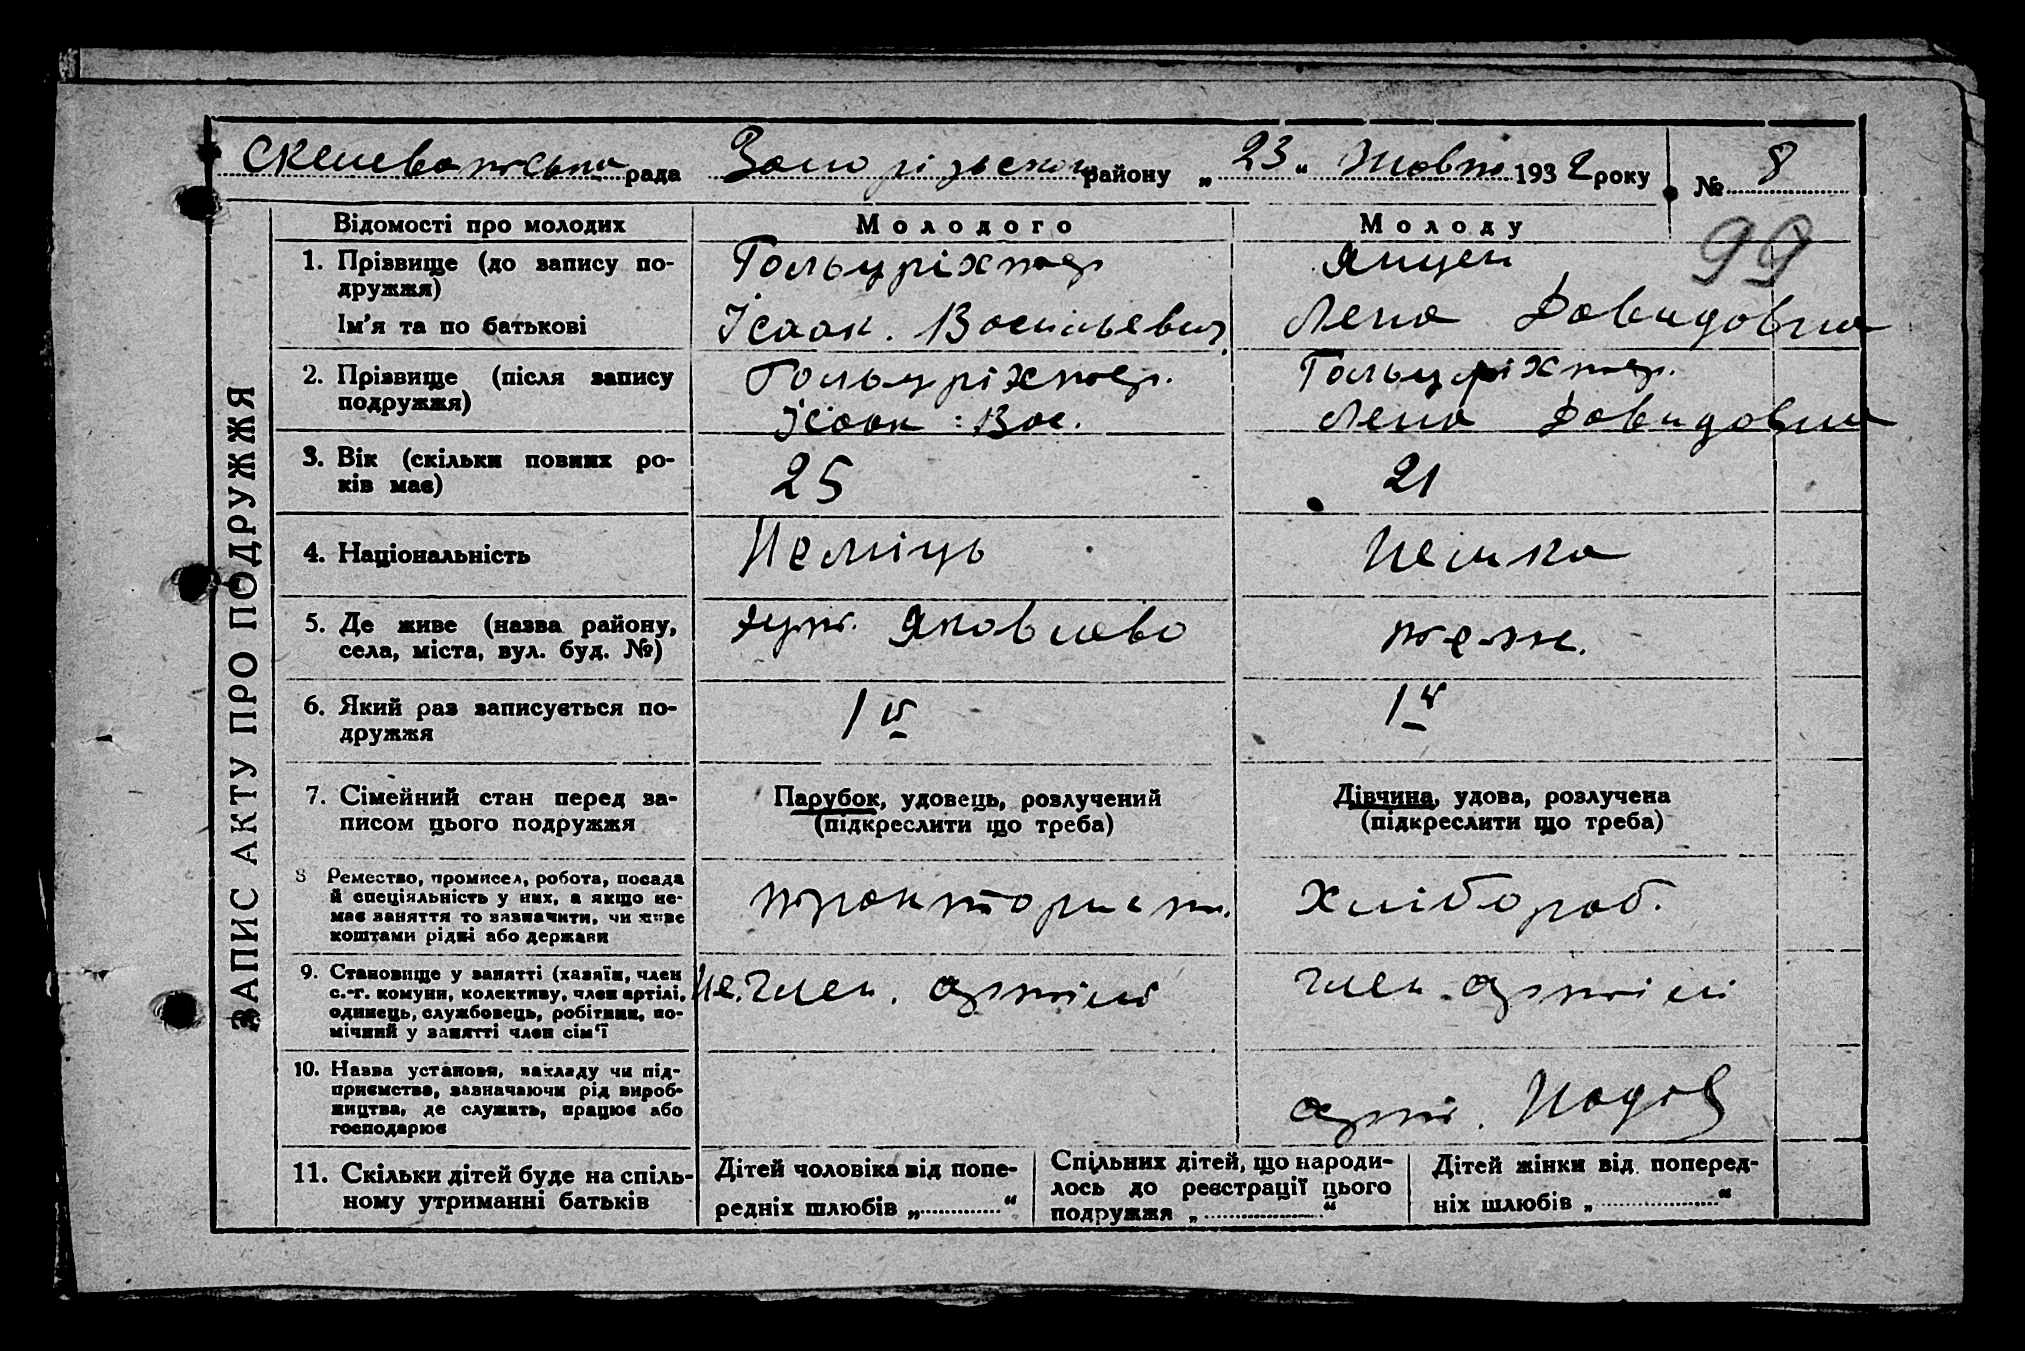 рада Запорізького району „ 23 “ Жовт 1932 року № 8
99
ЗАПИС АКТУ ПРО ПОДРУЖЖЯ
Відомості про молодих Молодого Молоду
1. Прізвище (до запису по-
дружжя) Гольцріхтер Янцен
Ім'я та по батькові Ісаак. Васильевич Лена Давидовна
2. Прізвище (після запису Гольцріхтер. Гольцріхтер.
подружжя) Ісаак : Вас. Лена Давидовна
3. Вік (скільки повних ро-
ків має) 25 21
4. Національність Неміць Немка
5. Де живе (назва району,
села, міста, вул. буд. №) хут. Яковлево теж.
6. Який раз записується по-
дружжя 1й 1й
7. Сімейний стан перед за-
писом цього подружжя
Парубок, удовець, розлучений
(підкреслити що треба)
Дівчина, удова, розлучена
(підкреслити що треба)
8 Ремество, промисел, робота, посада
й спеціяльність у них, а якщо не-
має заняття то зазначити, чи живе
коштами рідні або держави
тракторист. Хлібороб.
9. Становище у занятті (хазяїн, член
с.-г. комуни, колективу, член артілі,
одинець, службовець, робітник, по-
мічний у занятті член сім'ї
Не.член. артілі член артілі
10. Назва установи, закладу чи під-
приємства, зазначаючи рід вироб-
ництва, де служить, працює або
господарює
арт.
11. Скільки дітей буде на спіль-
ному утриманні батьків
Дітей чоловіка від попе-
редніх шлюбів „ “
Спільних дітей, що народи-
лось до реєстрації цього
подружжя „ “
Дітей жінки від поперед-
ніх шлюбів „ “